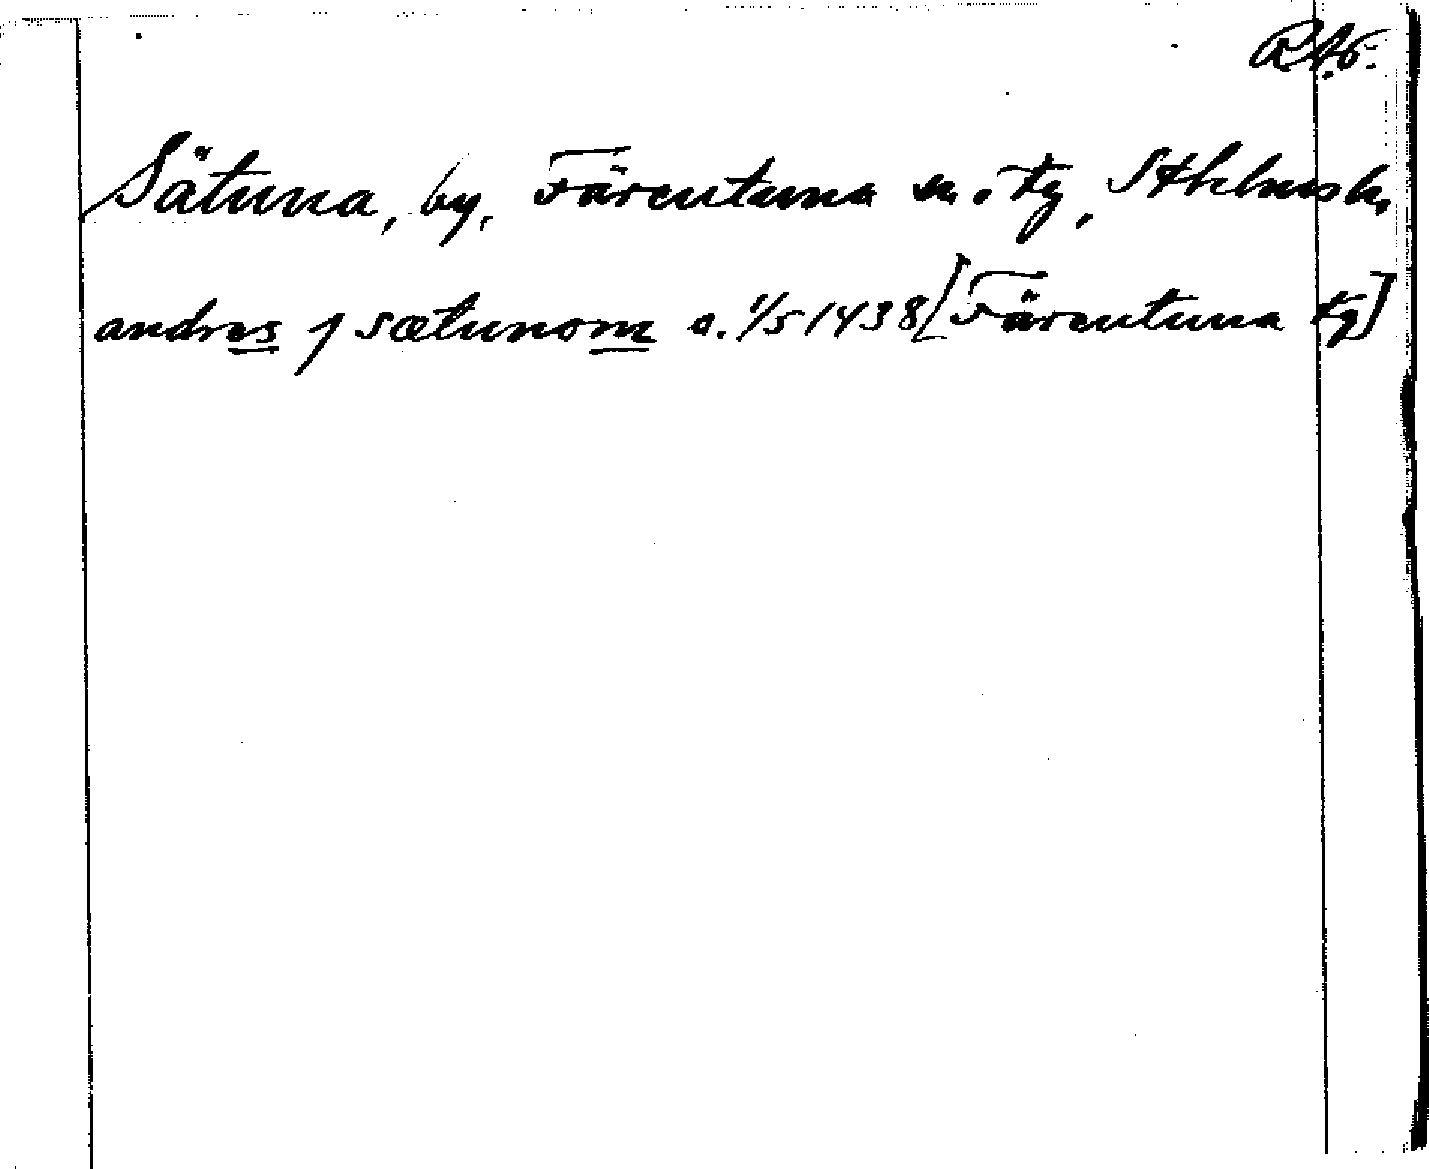 R.A.
Sätuna, by, Färentuna sn. o. tg, Sthlmsk.
andres j sætunom o. 1/5 1438 [Färentuna tg]